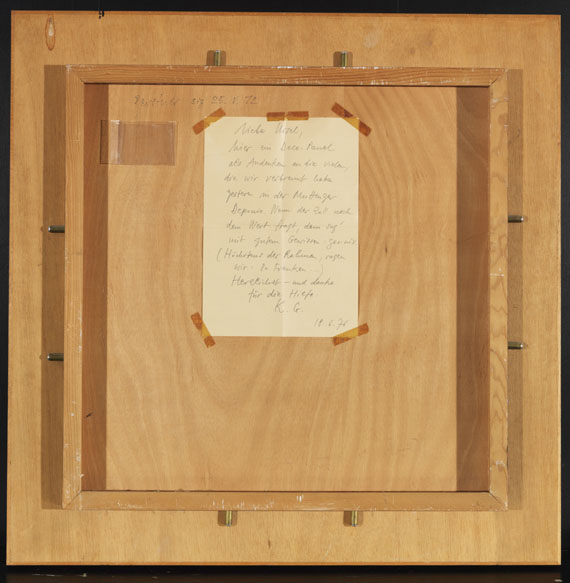 bis 28. 1. 72
Liebe Ursel,
hier ein Deco-Panel
als Andenken an die vielen,
die wir verbrannt haben
gestern in der Muttenzer
Deponie. Wenn der Zoll nach
dem Wert fragt, dann sag
mit gutem Gewissen gar nix
(Höchstens der Rahmen, sagen
wir: 20 Franken.)
Herzlichst – und danke
für die Hilfe.
K. G.
19. 6. 76